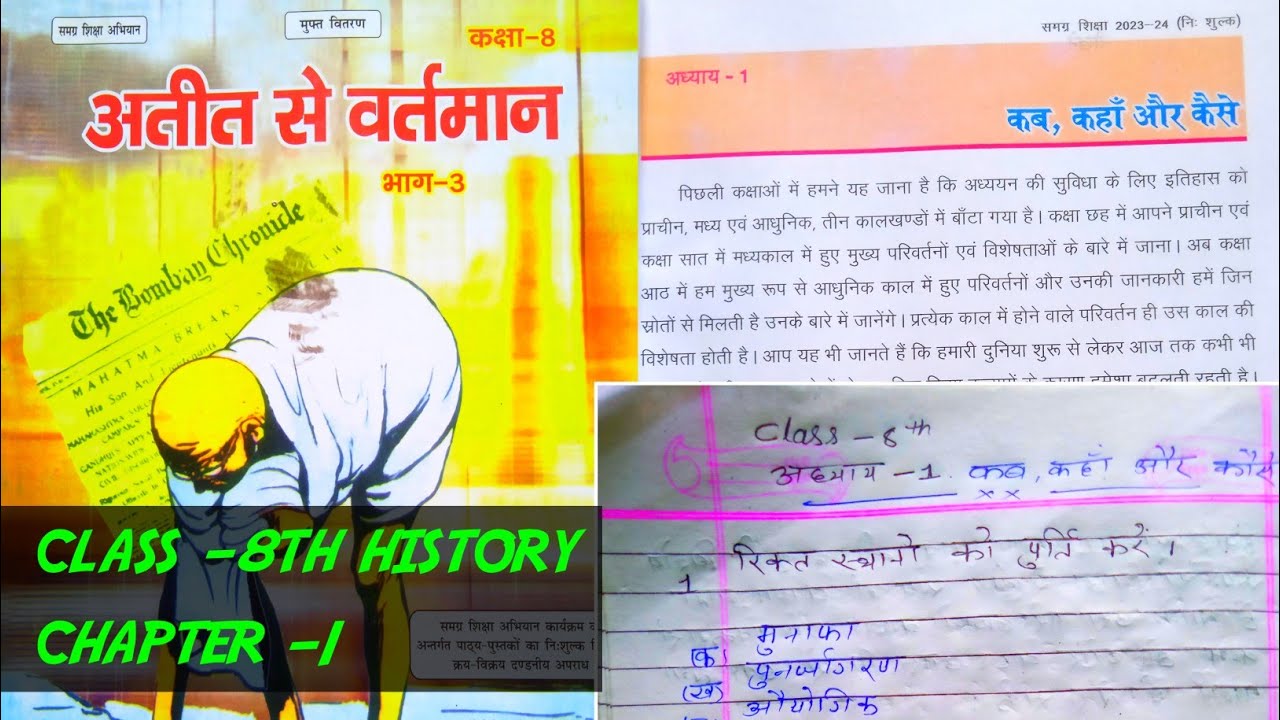 समग्र शिक्षा अभियान
मुफ्त वितरण
कक्षा-8
अतीत से वर्तमान
भाग-3
The Bombay Chronicle
MAHATMA BREAKS
His Son And
CAMPAIGN
CLASS -8TH HISTORY
CHAPTER -1
समग्र शिक्षा अभियान कार्यक्रम
अन्तर्गत पाठ्य-पुस्तकों का निःशुल्क
क्रय-विक्रय दण्डनीय अपराध
समग्र शिक्षा 2023-24 (निः शुल्क)
अध्याय - 1
कब, कहाँ और कैसे
पिछली कक्षाओं में हमने यह जाना है कि अध्ययन की सुविधा के लिए इतिहास को
प्राचीन, मध्य एवं आधुनिक, तीन कालखण्डों में बाँटा गया है। कक्षा छह में आपने प्राचीन एवं
कक्षा सात में मध्यकाल में हुए मुख्य परिवर्तनों एवं विशेषताओं के बारे में जाना। अब कक्षा
आठ में हम मुख्य रूप से आधुनिक काल में हुए परिवर्तनों और उनकी जानकारी हमें जिन
स्रोतों से मिलती है उनके बारे में जानेंगे। प्रत्येक काल में होने वाले परिवर्तन ही उस काल की
विशेषता होती है। आप यह भी जानते हैं कि हमारी दुनिया शुरू से लेकर आज तक कभी भी
कारण हमेशा बदलती रहती है।
Class - 8th
अध्याय -1. कब, कहाँ और कैसे
1 रिक्त स्थानो को पुर्ति करें।
(क) मुनाफा
(ख) पुनर्जागरण
औद्योगिक